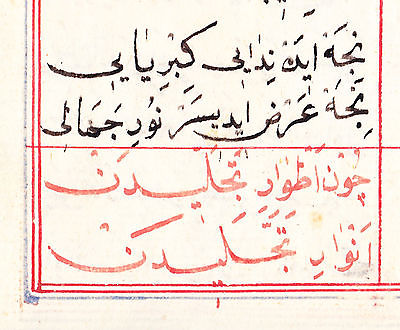 نیجه ایده ندایی کبریایی
نیجه عرض ایدیسر نور جمالی
چون اطوار تجلیدن
انوار تجلیدن
١